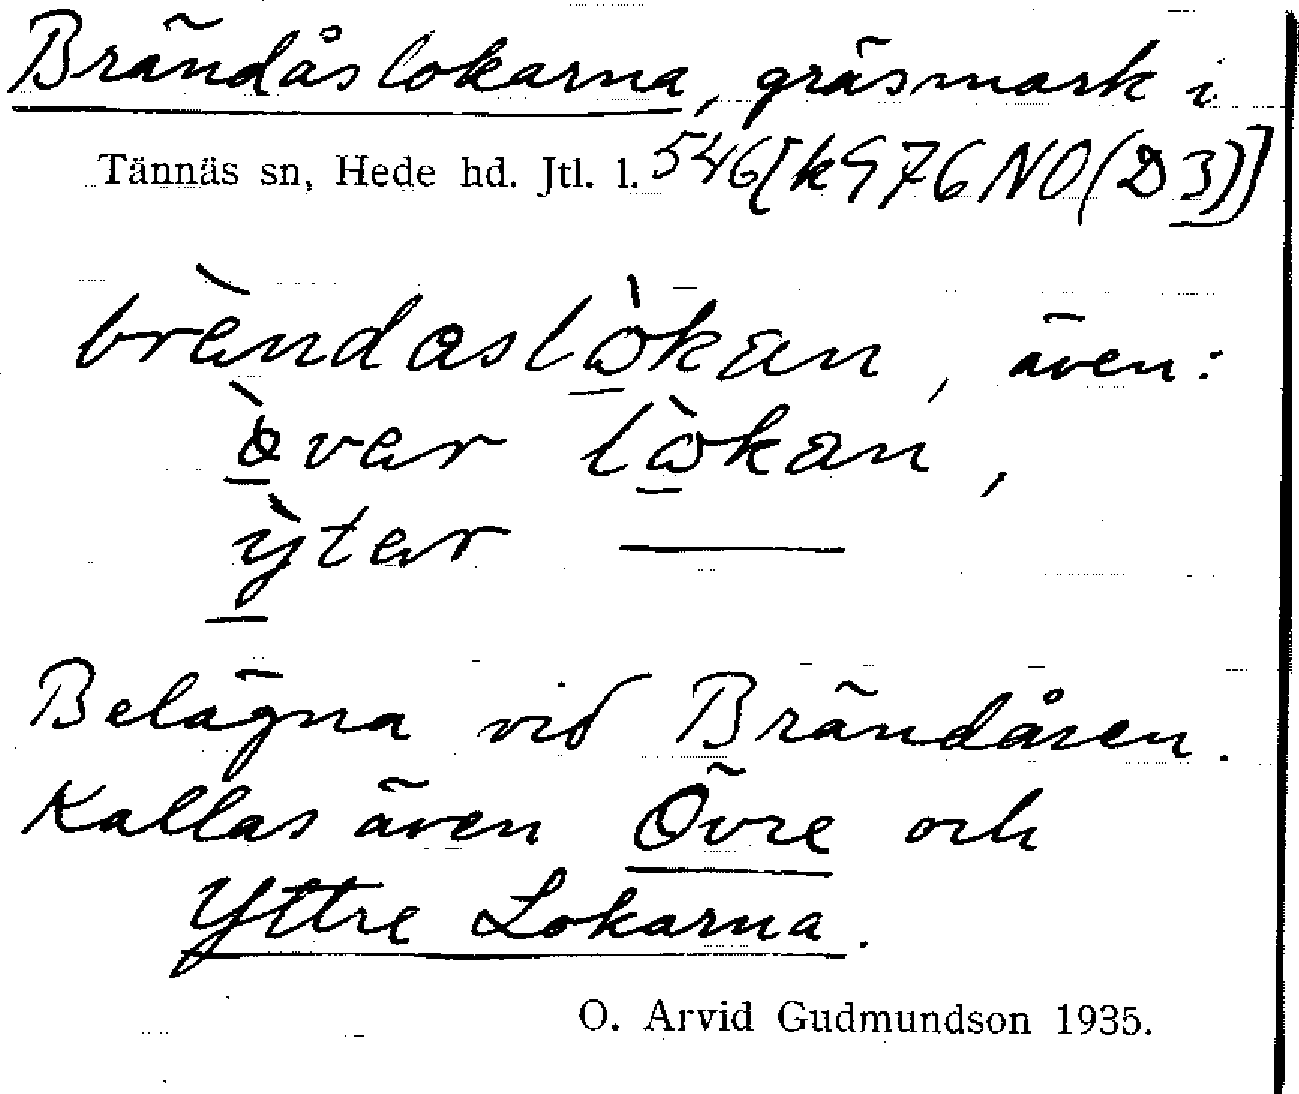 Brändåslokarna, gräsmark i
Tännäs sn, Hede hd. Jtl. l. 546[k 976 NO(D3)]
brὲndaslὼkan, även:
òvar lὼkan,
ỳtar ———
Belägna vid Brändåsen.
Kallas även Övre och
Yttre Lokarna.
O. Arvid Gudmundson 1935.